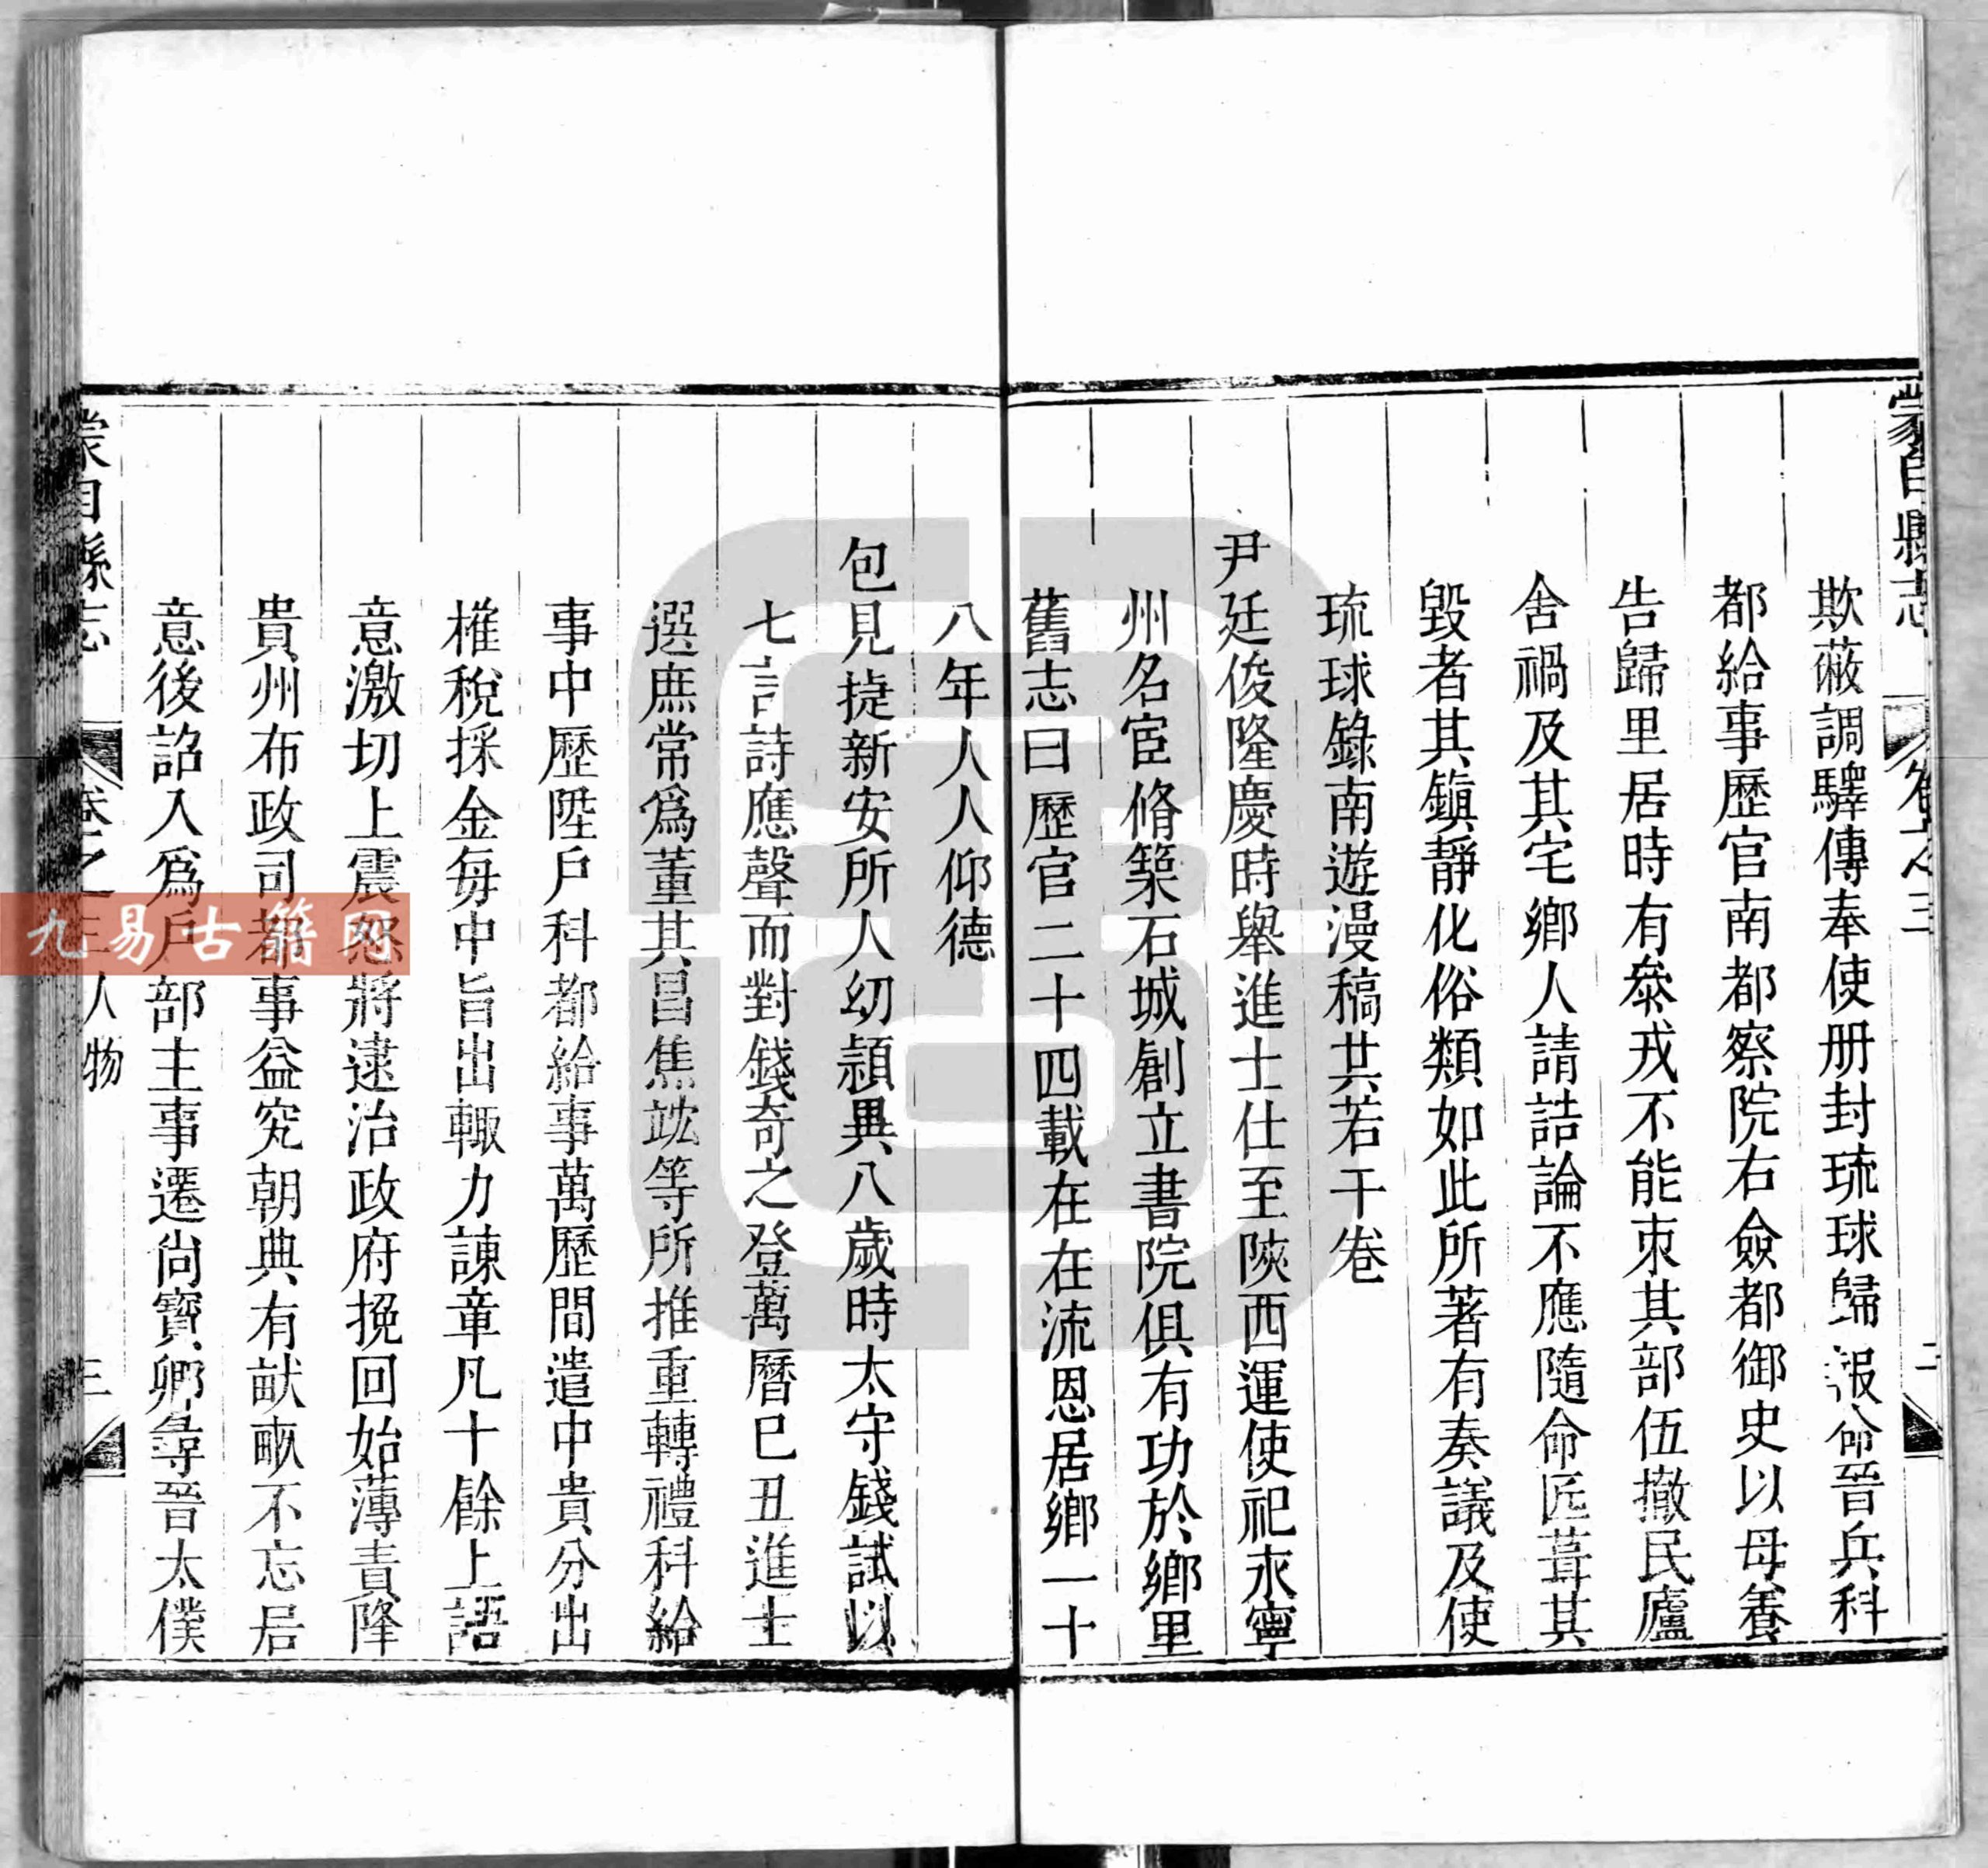 蒙自縣志
卷之三
二
欺蔽調驛傳奉使册封琉球歸報命晉兵科
都給事歷官南都察院右僉都御史以母養
告歸里居時有叅戎不能束其部伍撤民廬
舍禍及其宅鄉人請詰論不應隨命匠葺其
毀者其鎮靜化俗類如此所著有奏議及使
琉球錄南遊漫稿共若干卷
尹廷俊隆慶時舉進士仕至陝西運使祀永寧
州名宦脩築石城創立書院俱有功於鄉里
舊志曰歷官二十四載在在流恩居鄉一十
八年人人仰德
包見捷新安所人幼頴異八歲時太守錢試以
七言詩應聲而對錢奇之登萬曆巳丑進士
選庶常爲董其昌焦竑等所推重轉禮科給
事中歷陞戶科都給事萬歷間遣中貴分出
榷稅採金每中旨出輒力諫章凡十餘上語
意激切上震怒將逮治政府挽回始薄責降
貴州布政司都事益究朝典有献畝不忘君
意後詔入爲戶部主事遷尙寶卿尋晉太僕
蒙自縣志
卷之三人物
三
九易古籍网